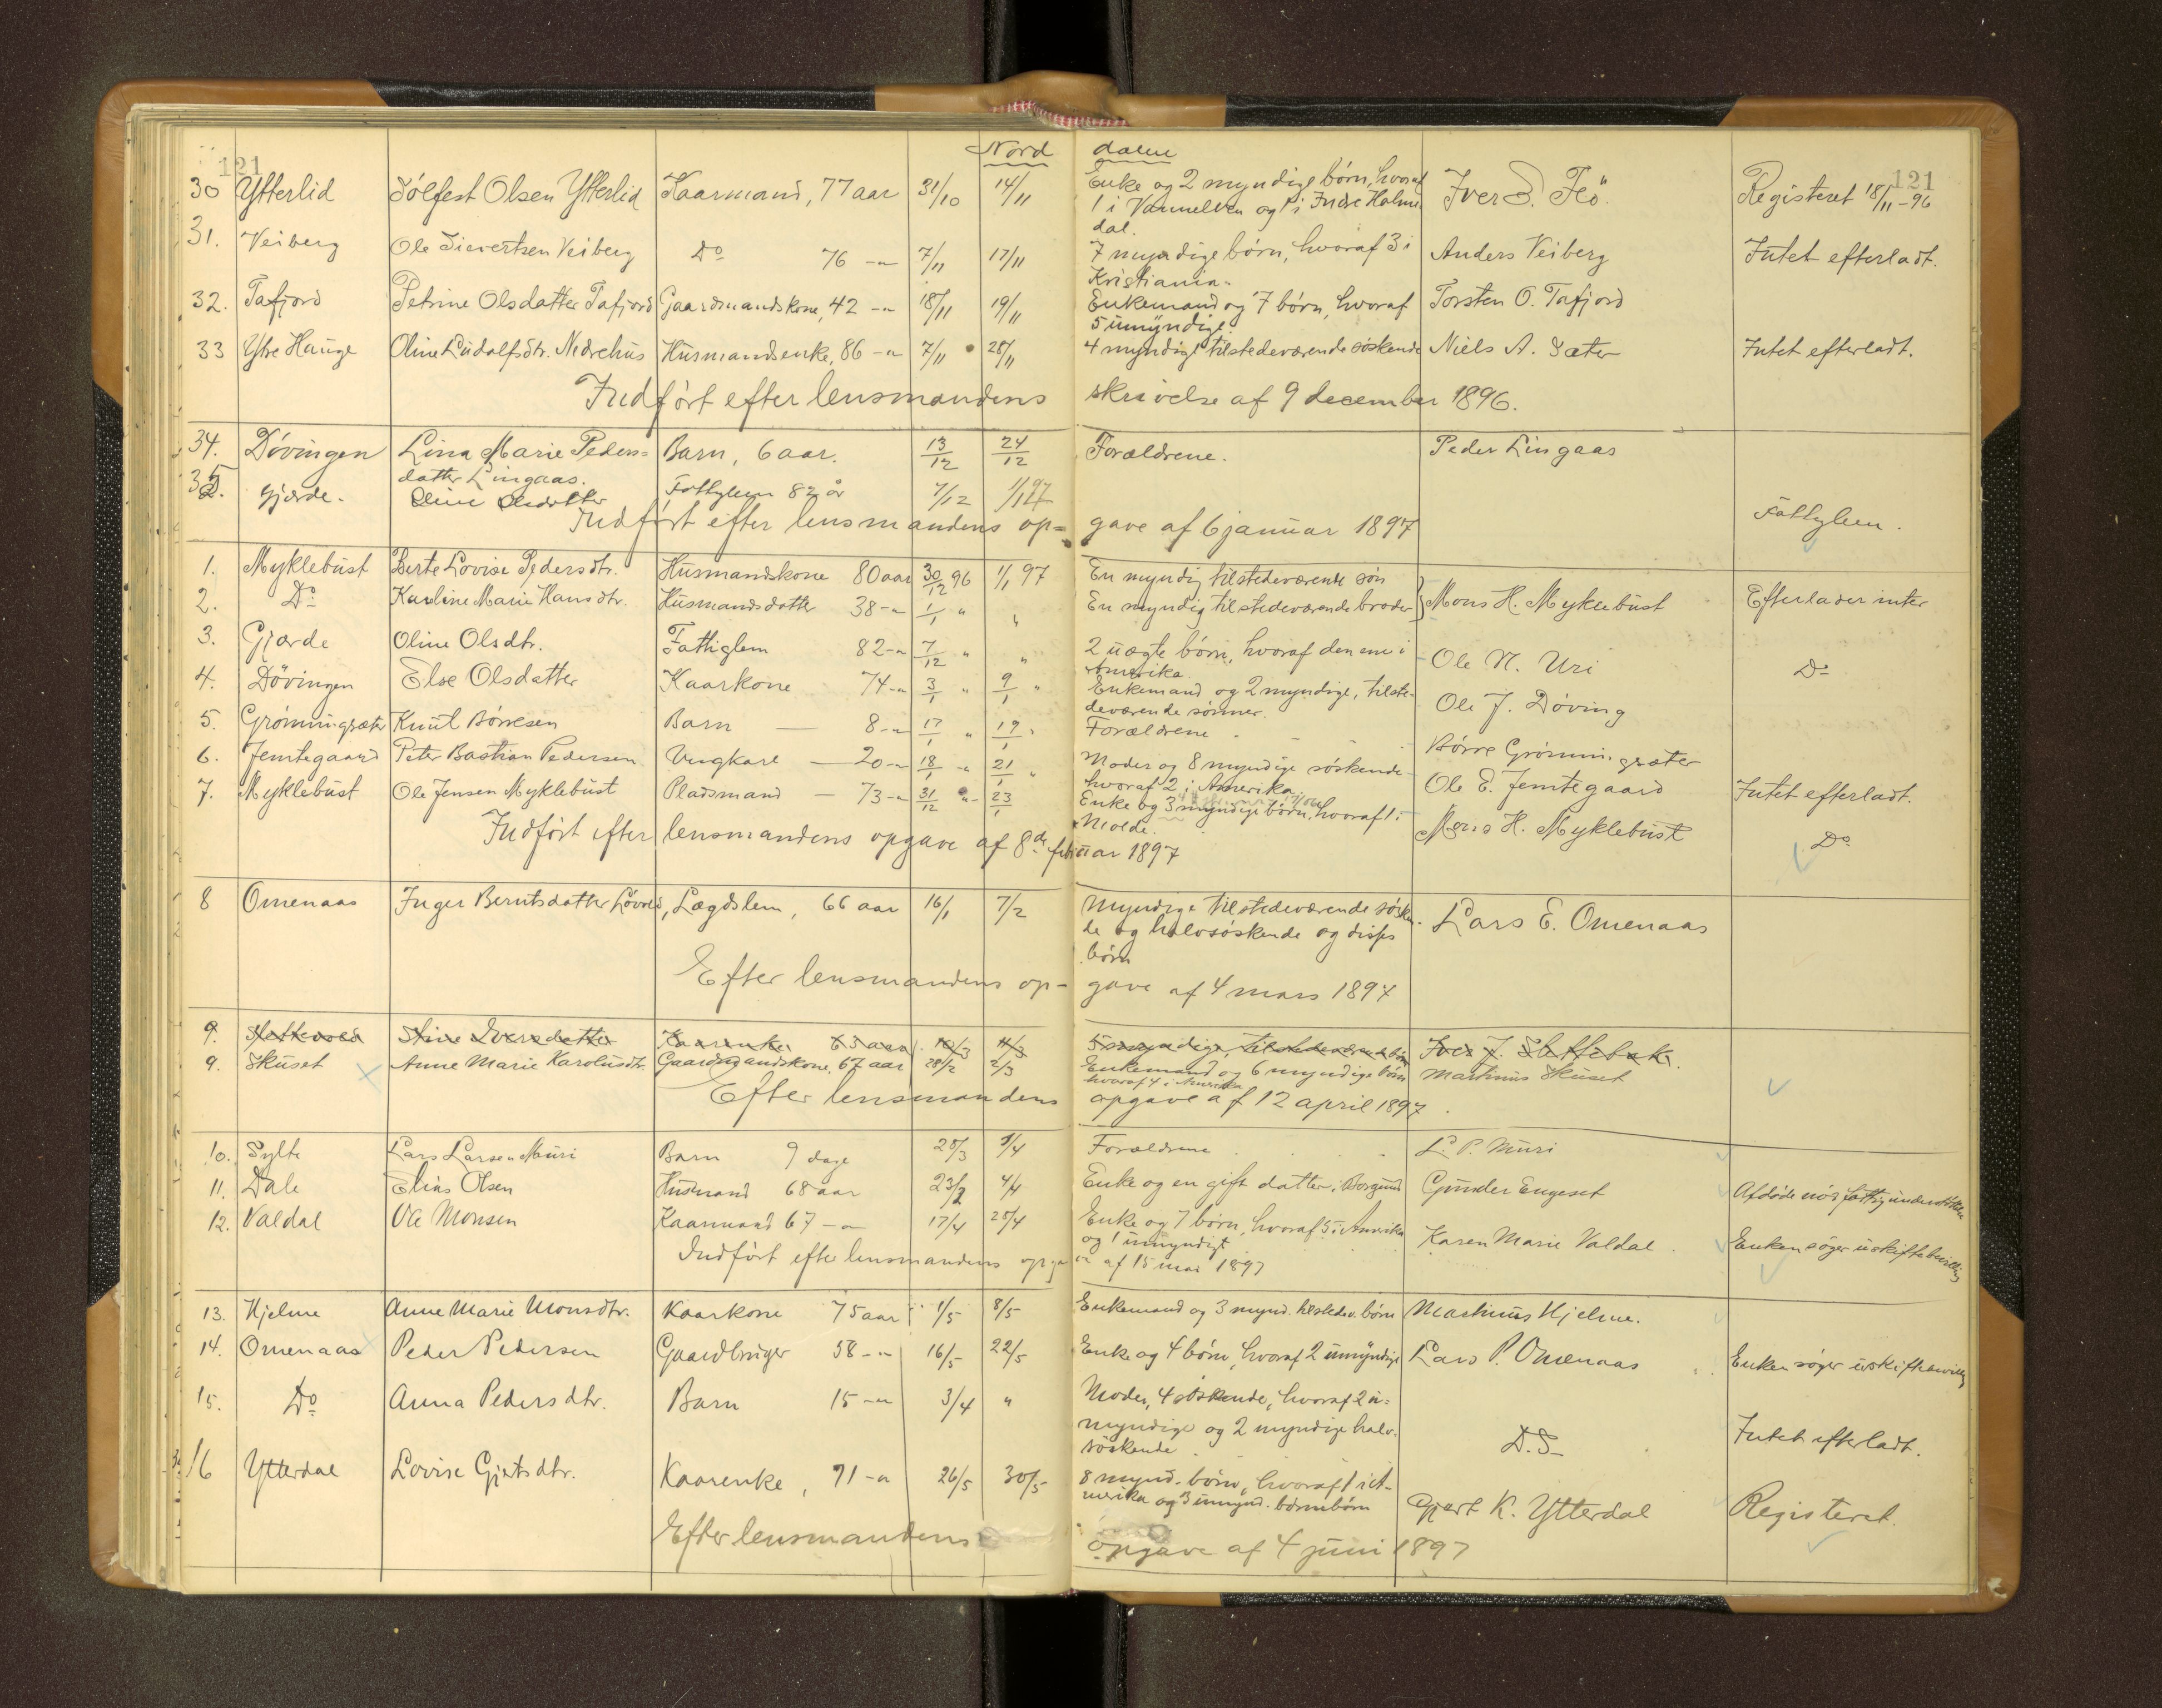 Nord dalen
121 121
30 Ytterlid Sölfest Olsen Ytterlid Kaarmand, 77 aar 31/10 14/11 Enke og 2 myndige børn, hvoraf Iver S. Registeret 18/11-96
1 i Vannelven og 1 i Indre Holme
dal.
31. Veiberg Ole Sievertsen Veiberg Do 76 -"- 7/11 17/11 7 myndige børn, hvoraf 3 i Anders Veiberg Intet efterladt.
Kristiania.
32. Tafjord Petrine Olsdatter Tafjord Gaardmandskone, 42 -"- 18/11 19/11 Enkemand og 7 børn, hvoraf Torsten O. Tafjord
5 umyndige
33 Ytre Hauge Oline Ludolfsdtr. Nedrehus Husmandsenke, 86 -"- 7/11 28/11 4 myndige tilstedeværende søskende Niels A. Sæter Intet efterladt.
Indført efter lensmandens skrivelse af 9 december 1896.
34. Døvingen Lina Marie Peders= Barn, 6 aar. 13/12 24/12 Forældrene. Peder Lingaas
datter Lingaas.
35. Gjærde. Oline Olsdatter Fattiglem 82 år 7/12 1/1 97 Fattiglem.
Indført efter lensmandens op= gave af 6 januar 1897
1. Myklebust Berte Lovise Pedersdtr. Husmandskone 80 aar 30/12 96 1/1 97 En myndig tilstedeværende søn
2. Do Karline Marie Hansdtr. Husmandsdatter 38 -"- 1/1 " " En myndig tilstedeværende broder } Mons H. Myklebust Efterlader intet
3. Gjærde Oline Olsdtr. Fattiglem 82 -"- 7/12 " " 2 uægte børn, hvoraf den ene i Ole N. Uri Do
Amerika.
4. Dövingen Else Olsdatter Kaarkone 74 -"- 3/1 " 9/1 " Enkemand og 2 myndige, tilste- Ole J. Døving
deværende sønner.
5. Grønningsæter Knut Børresen Barn — 8 -"- 17/1 " 19/1 " Forældrene Børre Grønningsæter
6. Jemtegaard Peter Bastian Pedersen Ungkarl — 20 -"- 18/1 " 21/1 " Moder og 8 myndige søskende Ole E. Jemtegaard Intet efterladt.
hvoraf 2 i Amerika
7. Myklebust Ole Jensen Myklebust Pladsmand — 73 -"- 31/12 " 23/1 Enke og 3 myndige børn, hvoraf 1 i Mons H. Myklebust Do
Molde.
Indført efter lensmandens opgave af 8de februar 1897
8 Omenaas Inger Berntsdatter Løvold, Lægdslem, 66 aar 16/1 7/2 Myndige tilstedeværende søsken- Lars E. Omenaas
de og halvsøskende og disses
børn
Efter lensmandens op- gave af 4 mars 1897
9. Stine Iversdatter Kaarenke 63 aar 10/3 11/3 5 myndige, tilstedeværende børn Iver J. Slettebak.
9. Skuset Anne Marie Karolusdtr. Gaardmandskone, 67 aar 28/2 2/3 Enkemand og 6 myndige børn Martinus Skuset
hvoraf 4 i Amerika
Efter lensmandens opgave af 12 april 1897.
10. Sylte Lars Larsen Muri Barn 9 dage 28/3 9/4 Forældrene L. P. Muri
11. Dale Elias Olsen Husmand 68 aar 23/2 4/4 Enke og en gift datter i Borgund Gunder Engeset Afdøde nød fattigunderstøttelse
12. Valdal Ole Monsen Kaarmand 67 -"- 17/4 25/4 Enke og 7 børn, hvoraf 5 i Amerika Karen Marie Valdal. Enken søger uskiftebevilling
og 1 umyndigt
Indført efter lensmandens opgave af 15 mai 1897
13. Hjelme Anne Marie Monsdtr. Kaarkone 75 aar 1/5 8/5 Enkemand og 3 mynd. tilstedev. børn Martinus Hjelme.
14. Omenaas Peder Pedersen Gaardbruger 58 -"- 16/5 22/5 Enke og 4 børn, hvoraf 2 umyndige Lars P. Omenaas Enken søger uskiftebevilling
15. Do Anna Pedersdtr. Barn 15 -"- 3/4 " Moder, 4 søskende, hvoraf 2 u= D.S. Intet efterladt.
myndige og 2 myndige halv.
søskende.
16 Ytterdal Lovise Gjertsdtr. Kaarenke, 71 -"- 26/5 30/5 8 mynd. børn, hvoraf 1 i A- Gjert K. Ytterdal Registeret.
merika og 3 umynd. børnebørn
Efter lensmandens opgave af 4 juni 1897